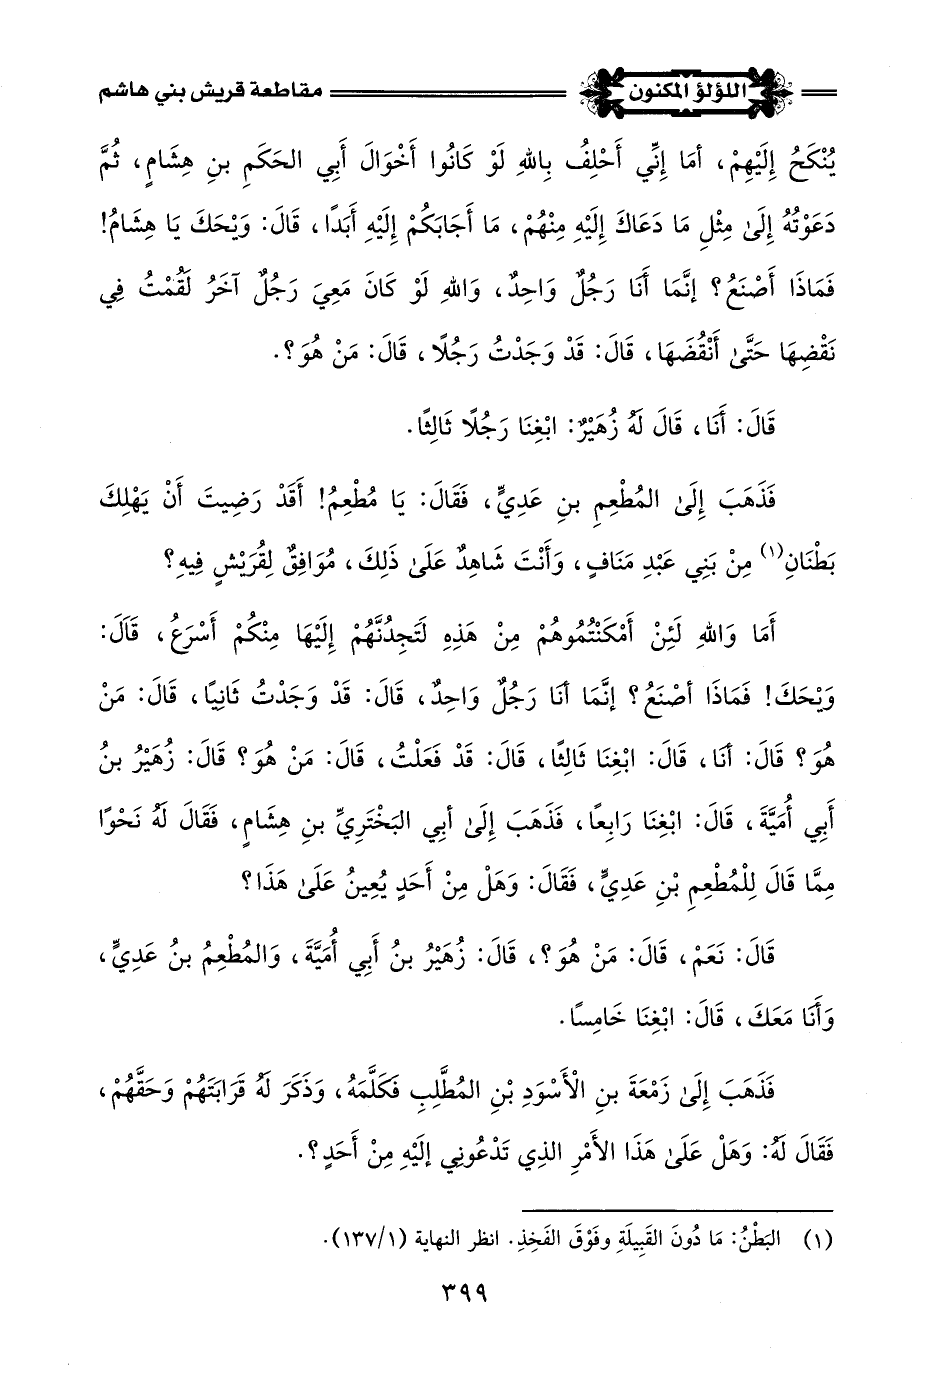 اللؤلؤ المكنون
مقاطعة قريش بني هاشم
يُنْكَحُ إِلَيْهِمْ، أمَا إِنِّي أَحْلِفُ بِاللهِ لَوْ كَانُوا أَخْوَالَ أَبِي الحَكَمِ بنِ هِشَامٍ، ثُمَّ
دَعَوْتُهُ إِلَىٰ مِثْلِ مَا دَعَاكَ إِلَيْهِ مِنْهُمْ، مَا أَجَابَكُمْ إِلَيْهِ أبَدًا، قَالَ: وَيْحَكَ يَا هِشَامُ!
فَمَاذَا أَصْنَعُ؟ إنَّمَا أَنَا رَجُلٌ وَاحِدٌ، وَاللهِ لَوْ كَانَ مَعِيَ رَجُلٌ آخَرُ لَقُمْتُ فِي
نَقْضِهَا حَتَّىٰ أَنْقُضَهَا، قَالَ: قَدْ وَجَدْتُ رَجُلًا، قَالَ: مَنْ هُوَ؟.
قَالَ: أَنَا، قَالَ لَهُ زُهَيْرٌ: ابْغِنَا رَجُلًا ثَالِثًا.
فَذَهَبَ إِلَىٰ المُطْعِمِ بنِ عَدِيٍّ، فَقَالَ: يَا مُطْعِمُ! أَقَدْ رَضِيتَ أَنْ يَهْلِكَ
بَطْنَانِ(١) مِنْ بَنِي عَبْدِ مَنَافٍ، وَأَنْتَ شَاهِدٌ عَلَىٰ ذَلِكَ، مُوَافِقٌ لِقُرَيْشٍ فِيهِ؟
أَمَا وَاللهِ لَئِنْ أَمْكَنْتُمُوهُمْ مِنْ هَذِهِ لَتَجِدُنَّهُمْ إِلَيْهَا مِنْكُمْ أَسْرَعُ، قَالَ:
وَيْحَكَ! فَمَاذَا أصْنَعُ؟ إنَّمَا أنَا رَجُلٌ وَاحِدٌ، قَالَ: قَدْ وَجَدْتُ ثَانِيًا، قَالَ: مَنْ
هُوَ؟ قَالَ: أنَا، قَالَ: ابْغِنَا ثَالِثًا، قَالَ: قَدْ فَعَلْتُ، قَالَ: مَنْ هُوَ؟ قَالَ: زُهَيْرُ بنُ
أَبِي أُمَيَّةَ، قَالَ: ابْغِنَا رَابِعًا، فَذَهَبَ إِلَىٰ أبِي البَخْتَرِيِّ بنِ هِشَامٍ، فَقَالَ لَهُ نَحْوًا
مِمَّا قَالَ لِلْمُطْعِمِ بْنِ عَدِيٍّ، فَقَالَ: وَهَلْ مِنْ أَحَدٍ يُعِينُ عَلَىٰ هَذَا؟
قَالَ: نَعَمْ، قَالَ: مَنْ هُوَ؟، قَالَ: زُهَيْرُ بنُ أَبِي أُمَيَّةَ، وَالمُطْعِمُ بنُ عَدِيٍّ،
وَأَنَا مَعَكَ، قَالَ: ابْغِنَا خَامِسًا.
فَذَهَبَ إِلَىٰ زَمْعَةَ بنِ الْأَسْوَدِ بْنِ المُطَّلِبِ فَكَلَّمَهُ، وَذَكَرَ لَهُ قَرَابَتَهُمْ وَحَقَّهُمْ،
فَقَالَ لَهُ: وَهَلْ عَلَىٰ هَذَا الأَمْرِ الذِي تَدْعُونِي إلَيْهِ مِنْ أَحَدٍ؟.
(١) البَطْنُ: مَا دُونَ القَبِيلَةِ وفَوْقَ الفَخِذِ. انظر النهاية (١/١٣٧).
٣٩٩